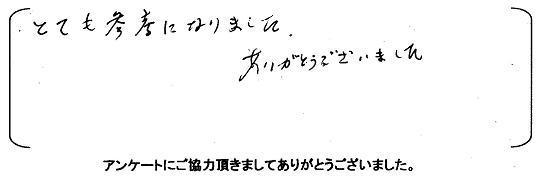 とても参考になりました.
ありがとうございました
アンケートにご協力頂きましてありがとうございました。